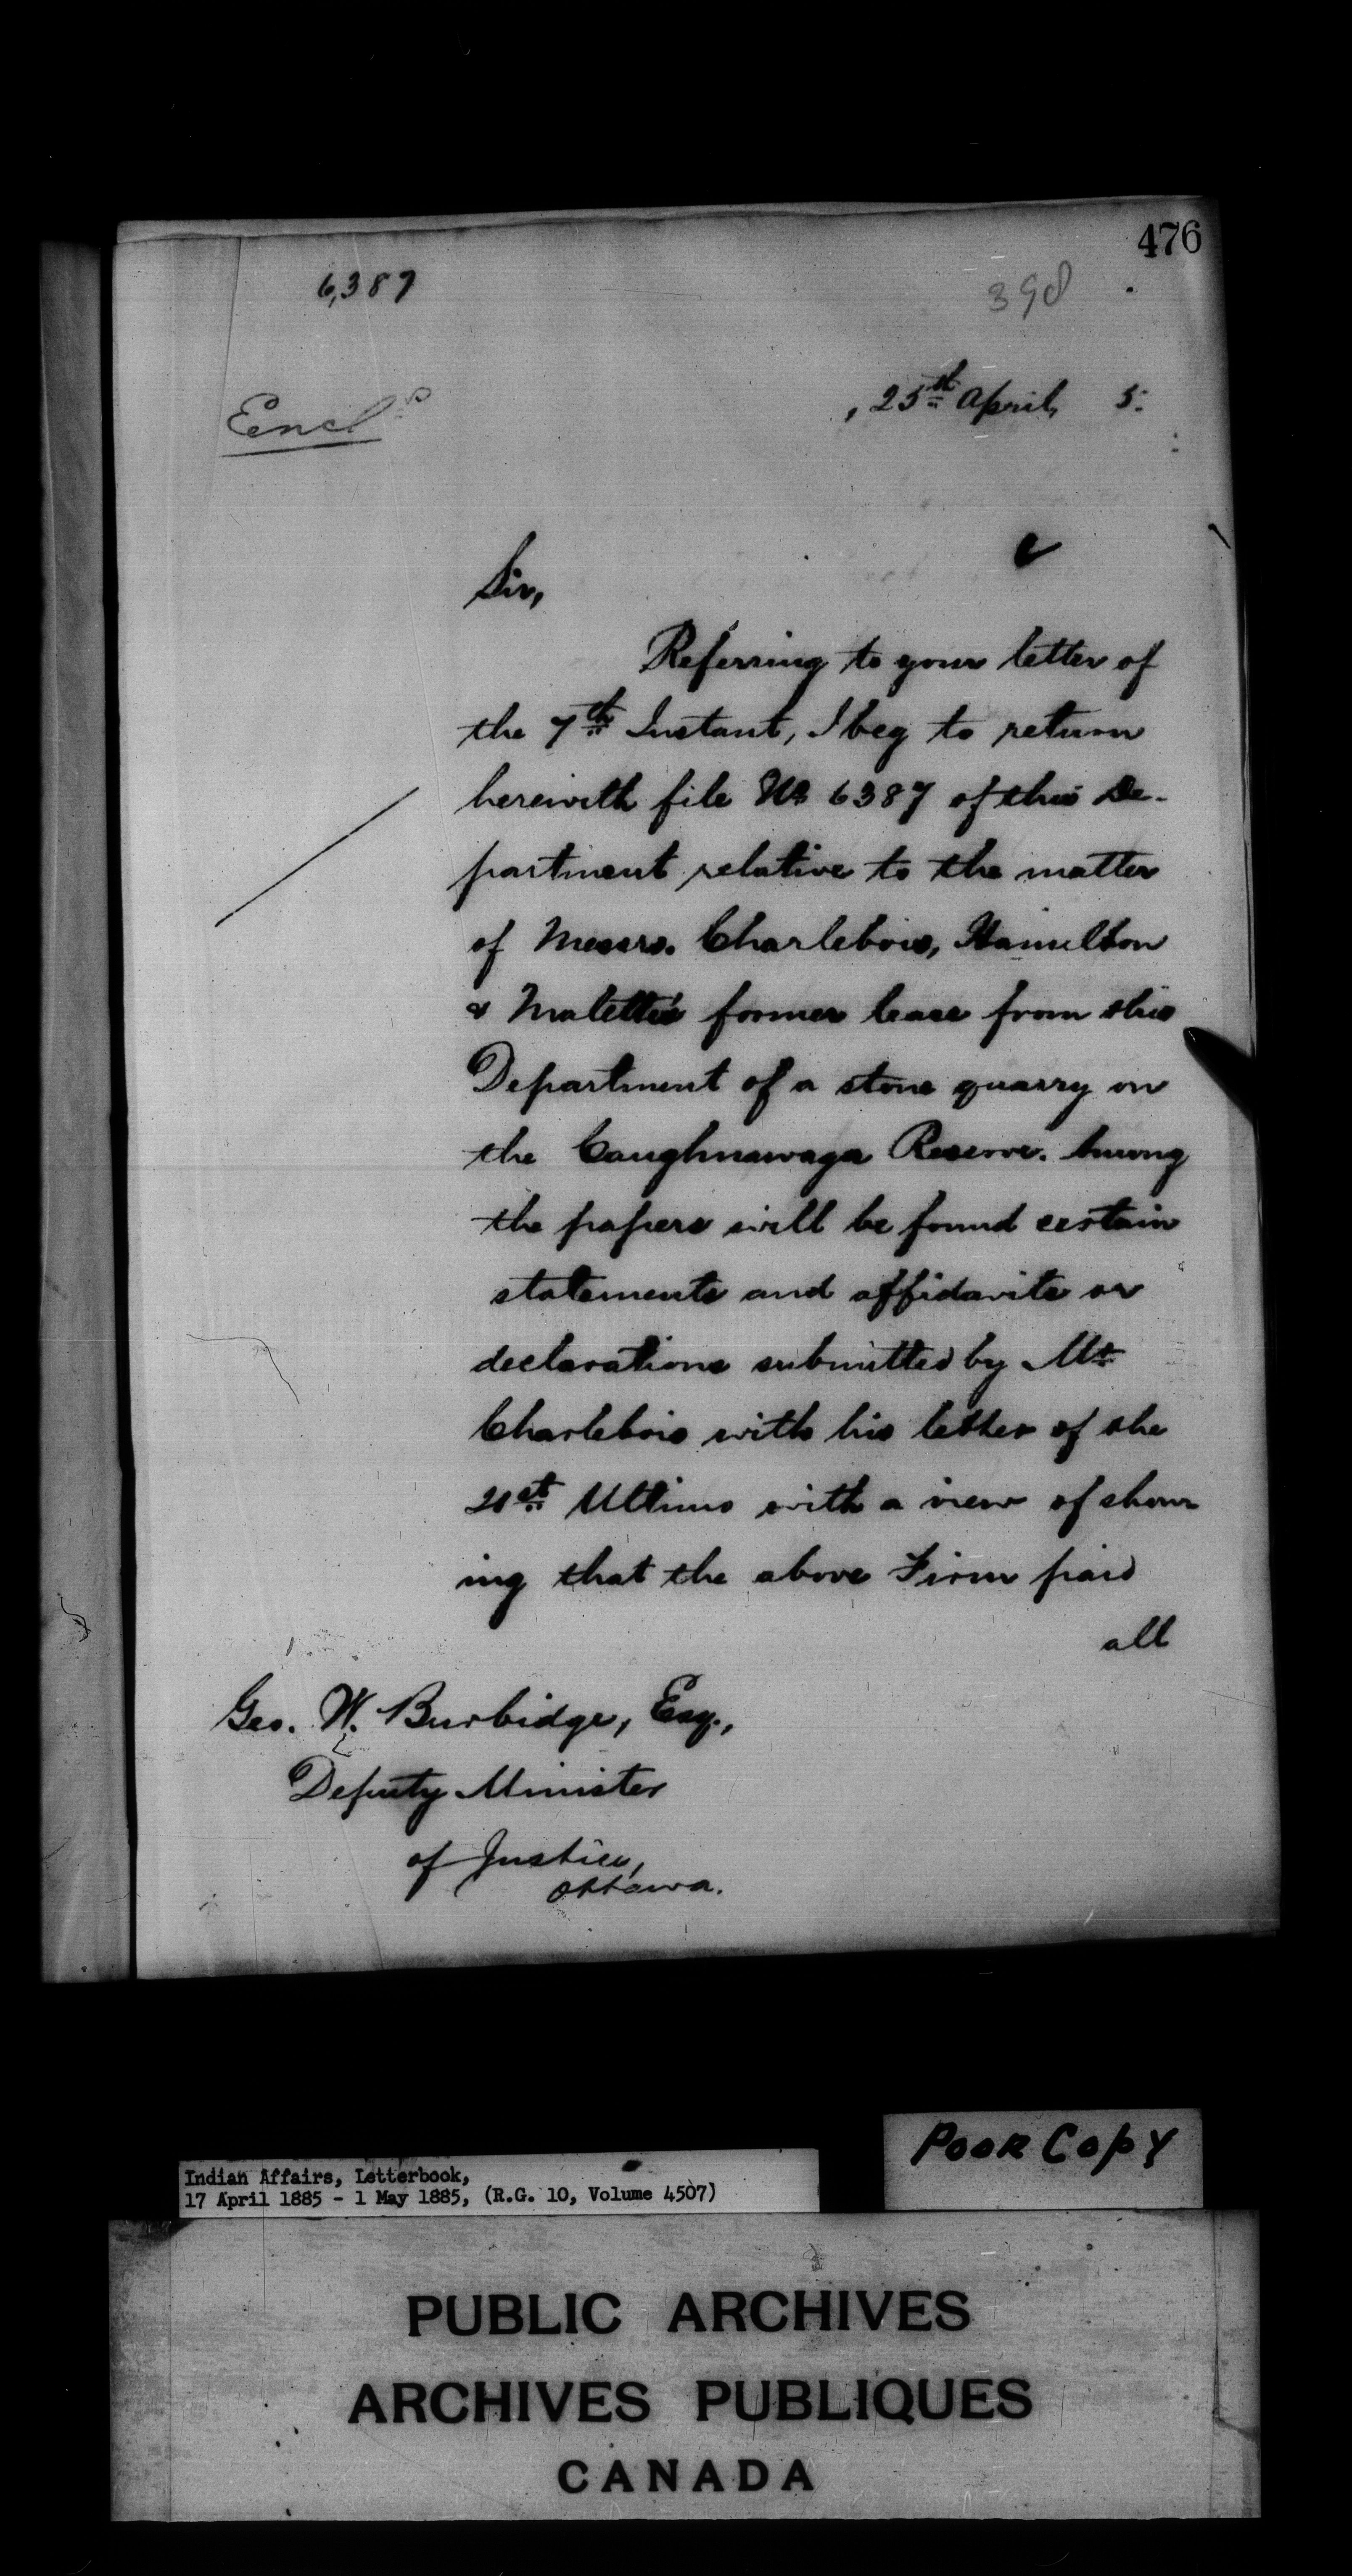 476
6,387
398
, 25th April, 5.
Encls
Sir,
Referring to your letter of
the 7th Instant, I beg to return
herewith file No 6387 of this De-
partment relative to the matter
of Messrs. Charlebois, Hamilton
& Malette's former lease from this
Department of a stone quarry on
the Caughnawaga Reserve. Among
the papers will be found certain
statements and affidavits or
declarations submitted by Mr
Charlebois with his letter of the
21st Ultimo with a view of show
ing that the above Firm paid
all
Geo. W. Burbidge, Esq.,
Deputy Minister
of Justice,
Ottawa.
Poor Copy
Indian Affairs, Letterbook,
17 April 1885 - 1 May 1885, (R.G. 10, Volume 4507)
PUBLIC ARCHIVES
ARCHIVES PUBLIQUES
CANADA